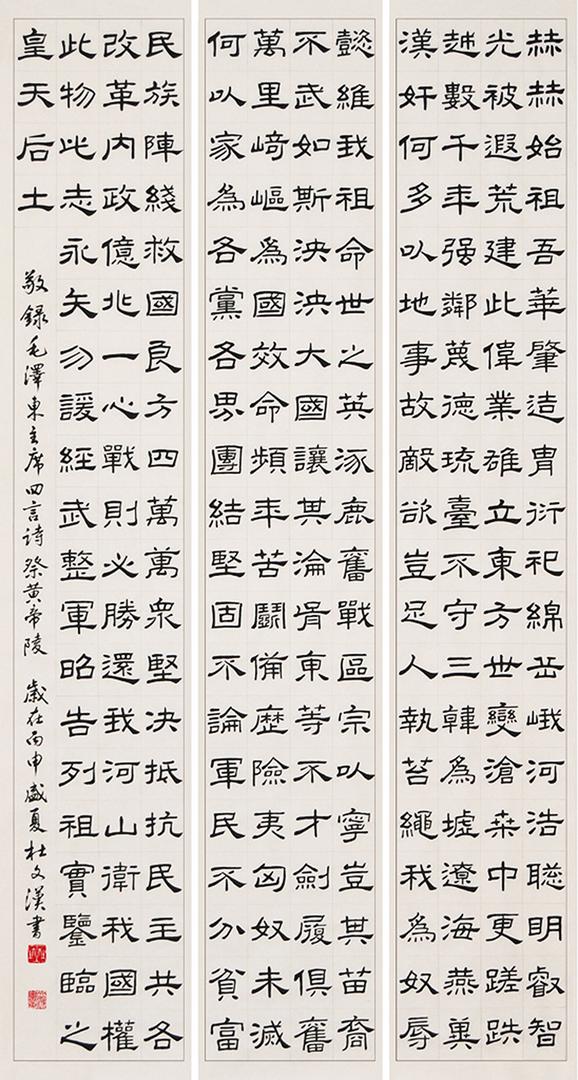 赫赫始祖吾華肇造胄衍祀綿岳峨河浩聰明叡智
光被遐荒建此偉業雄立東方世變滄桑中更蹉跌
越數千年强鄰蔑德琉臺不守三韓為墟遼海燕冀
漢奸何多以地事故敵欲豈足人執笞繩我為奴辱
懿維我祖命世之英涿鹿奮戰區宗以寧豈其苗裔
不武如斯泱泱大國讓其淪胥東等不才劍履俱奮
萬里崎嶇為國效命頻年苦鬭備歷險夷匈奴未滅
何以家為各黨各界團結堅固不論軍民不分貧富
民族陣綫救國良方四萬萬衆堅決抵抗民主共各
改革内政億兆一心戰則必勝還我河山衛我國權
此物此志永矢勿諼經武整軍昭告列祖實鑒臨之
皇天后土
敬錄毛澤東主席四言詩祭黄帝陵 歲在丙申盛夏杜文漢書